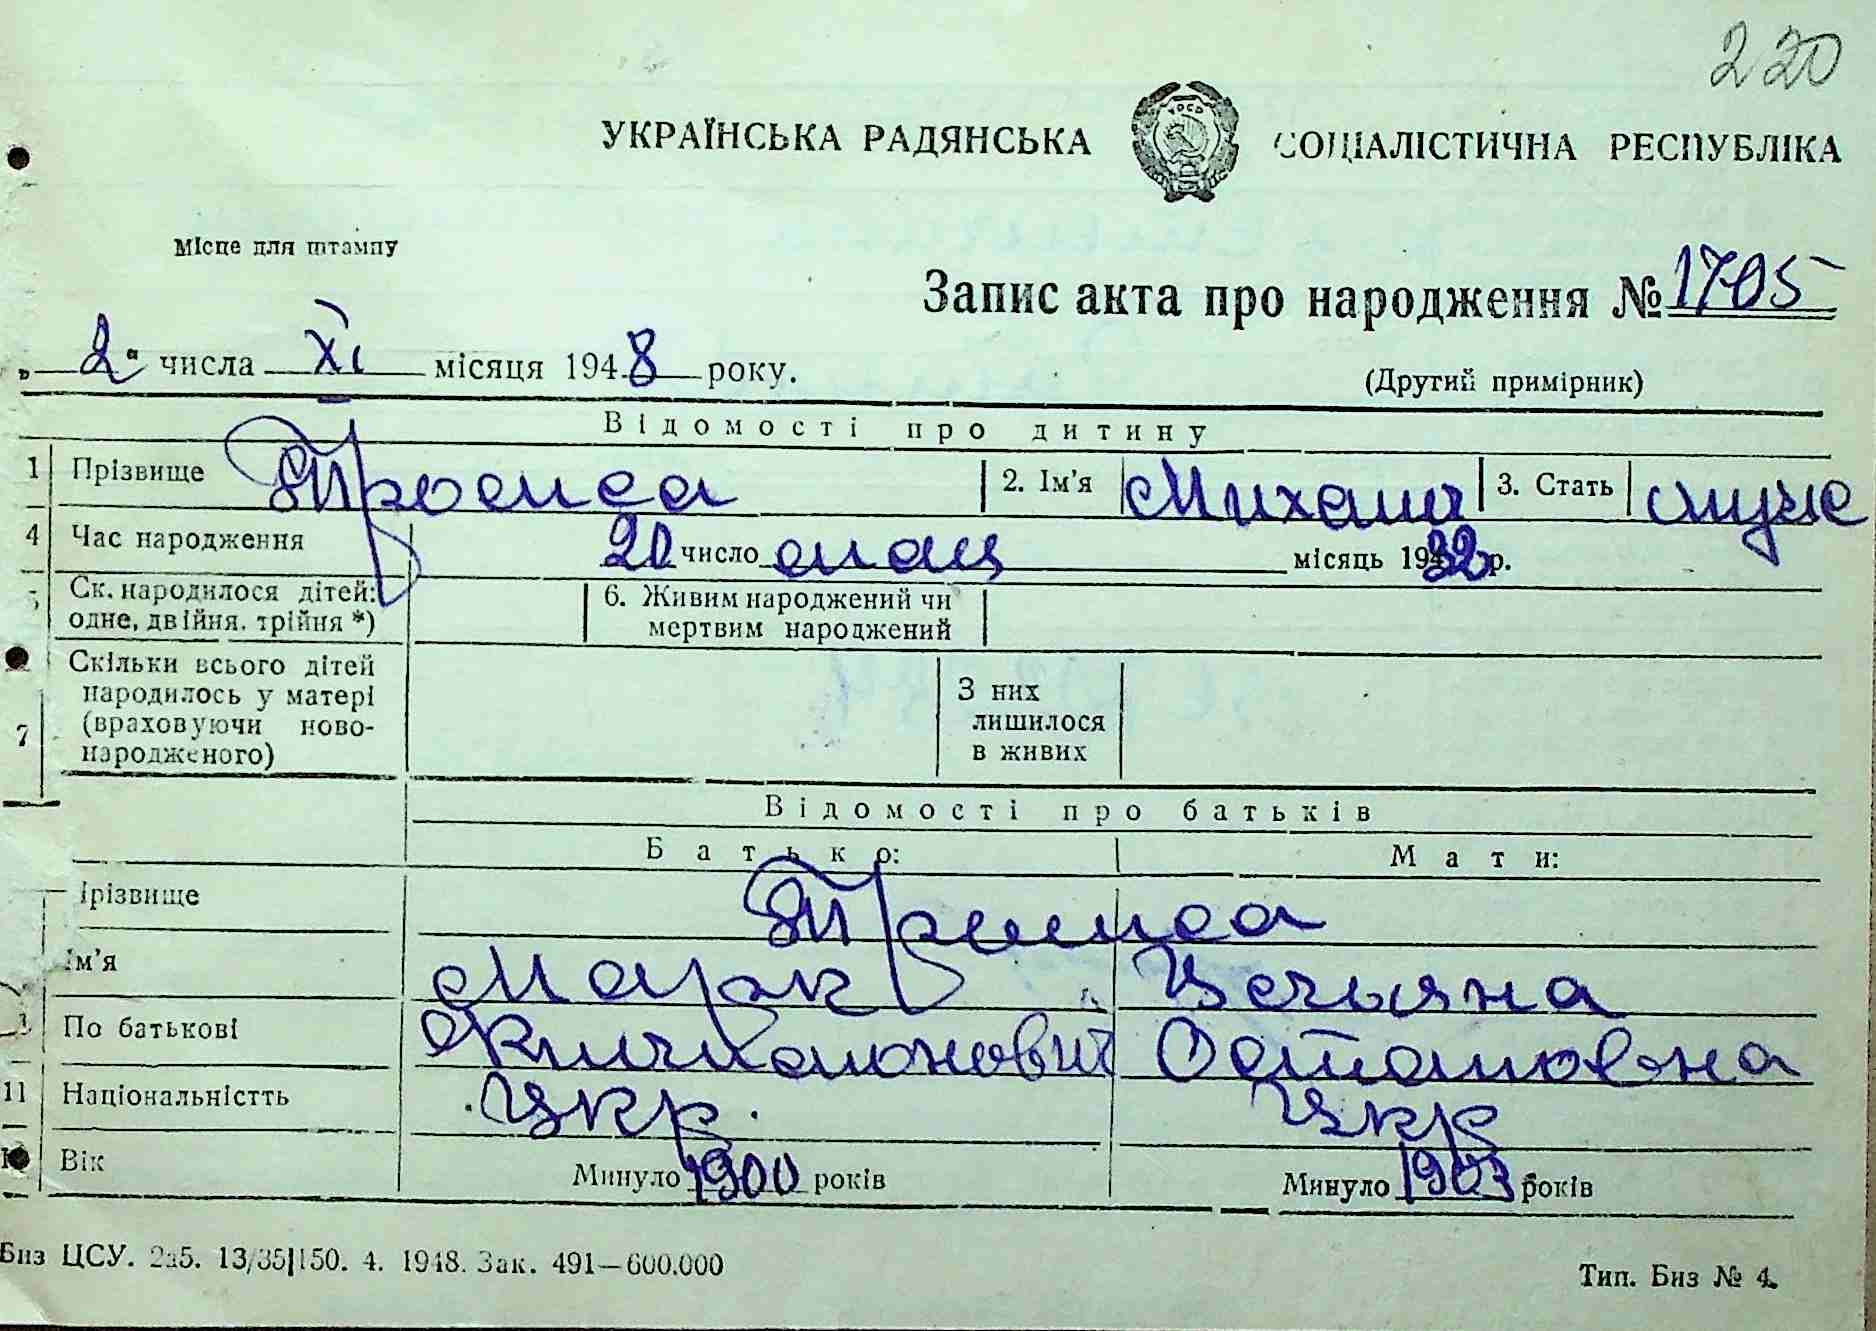 220
УКРАЇНСЬКА РАДЯНСЬКА СОЦІАЛІСТИЧНА РЕСПУБЛІКА
Місце для штампу
Запис акта про народження № 1705
„ 2 “ числа XI місяця 1948 року.
(Другий примірник)
Відомості про дитину
1 Прізвище 2. Ім'я Михаил 3. Стать муже
4 Час народження 20 число мац місяць 1932 р.
5 Ск. народилося дітей: одне, двійня, трійня *) 6. Живим народжений чи мертвим народжений
7 Скільки всього дітей народилось у матері (враховуючи ново- народженого) З них лишилося в живих
Відомості про батьків
Батько: Мати:
Прізвище
Ім'я Марк
По батькові Остаповна
11 Національністть Укр. Укр
Вік Минуло 1900 років Минуло 1903 років
Биз ЦСУ. 2а5. 13/35|150. 4. 1948. Зак. 491—600.000
Тип. Биз № 4.